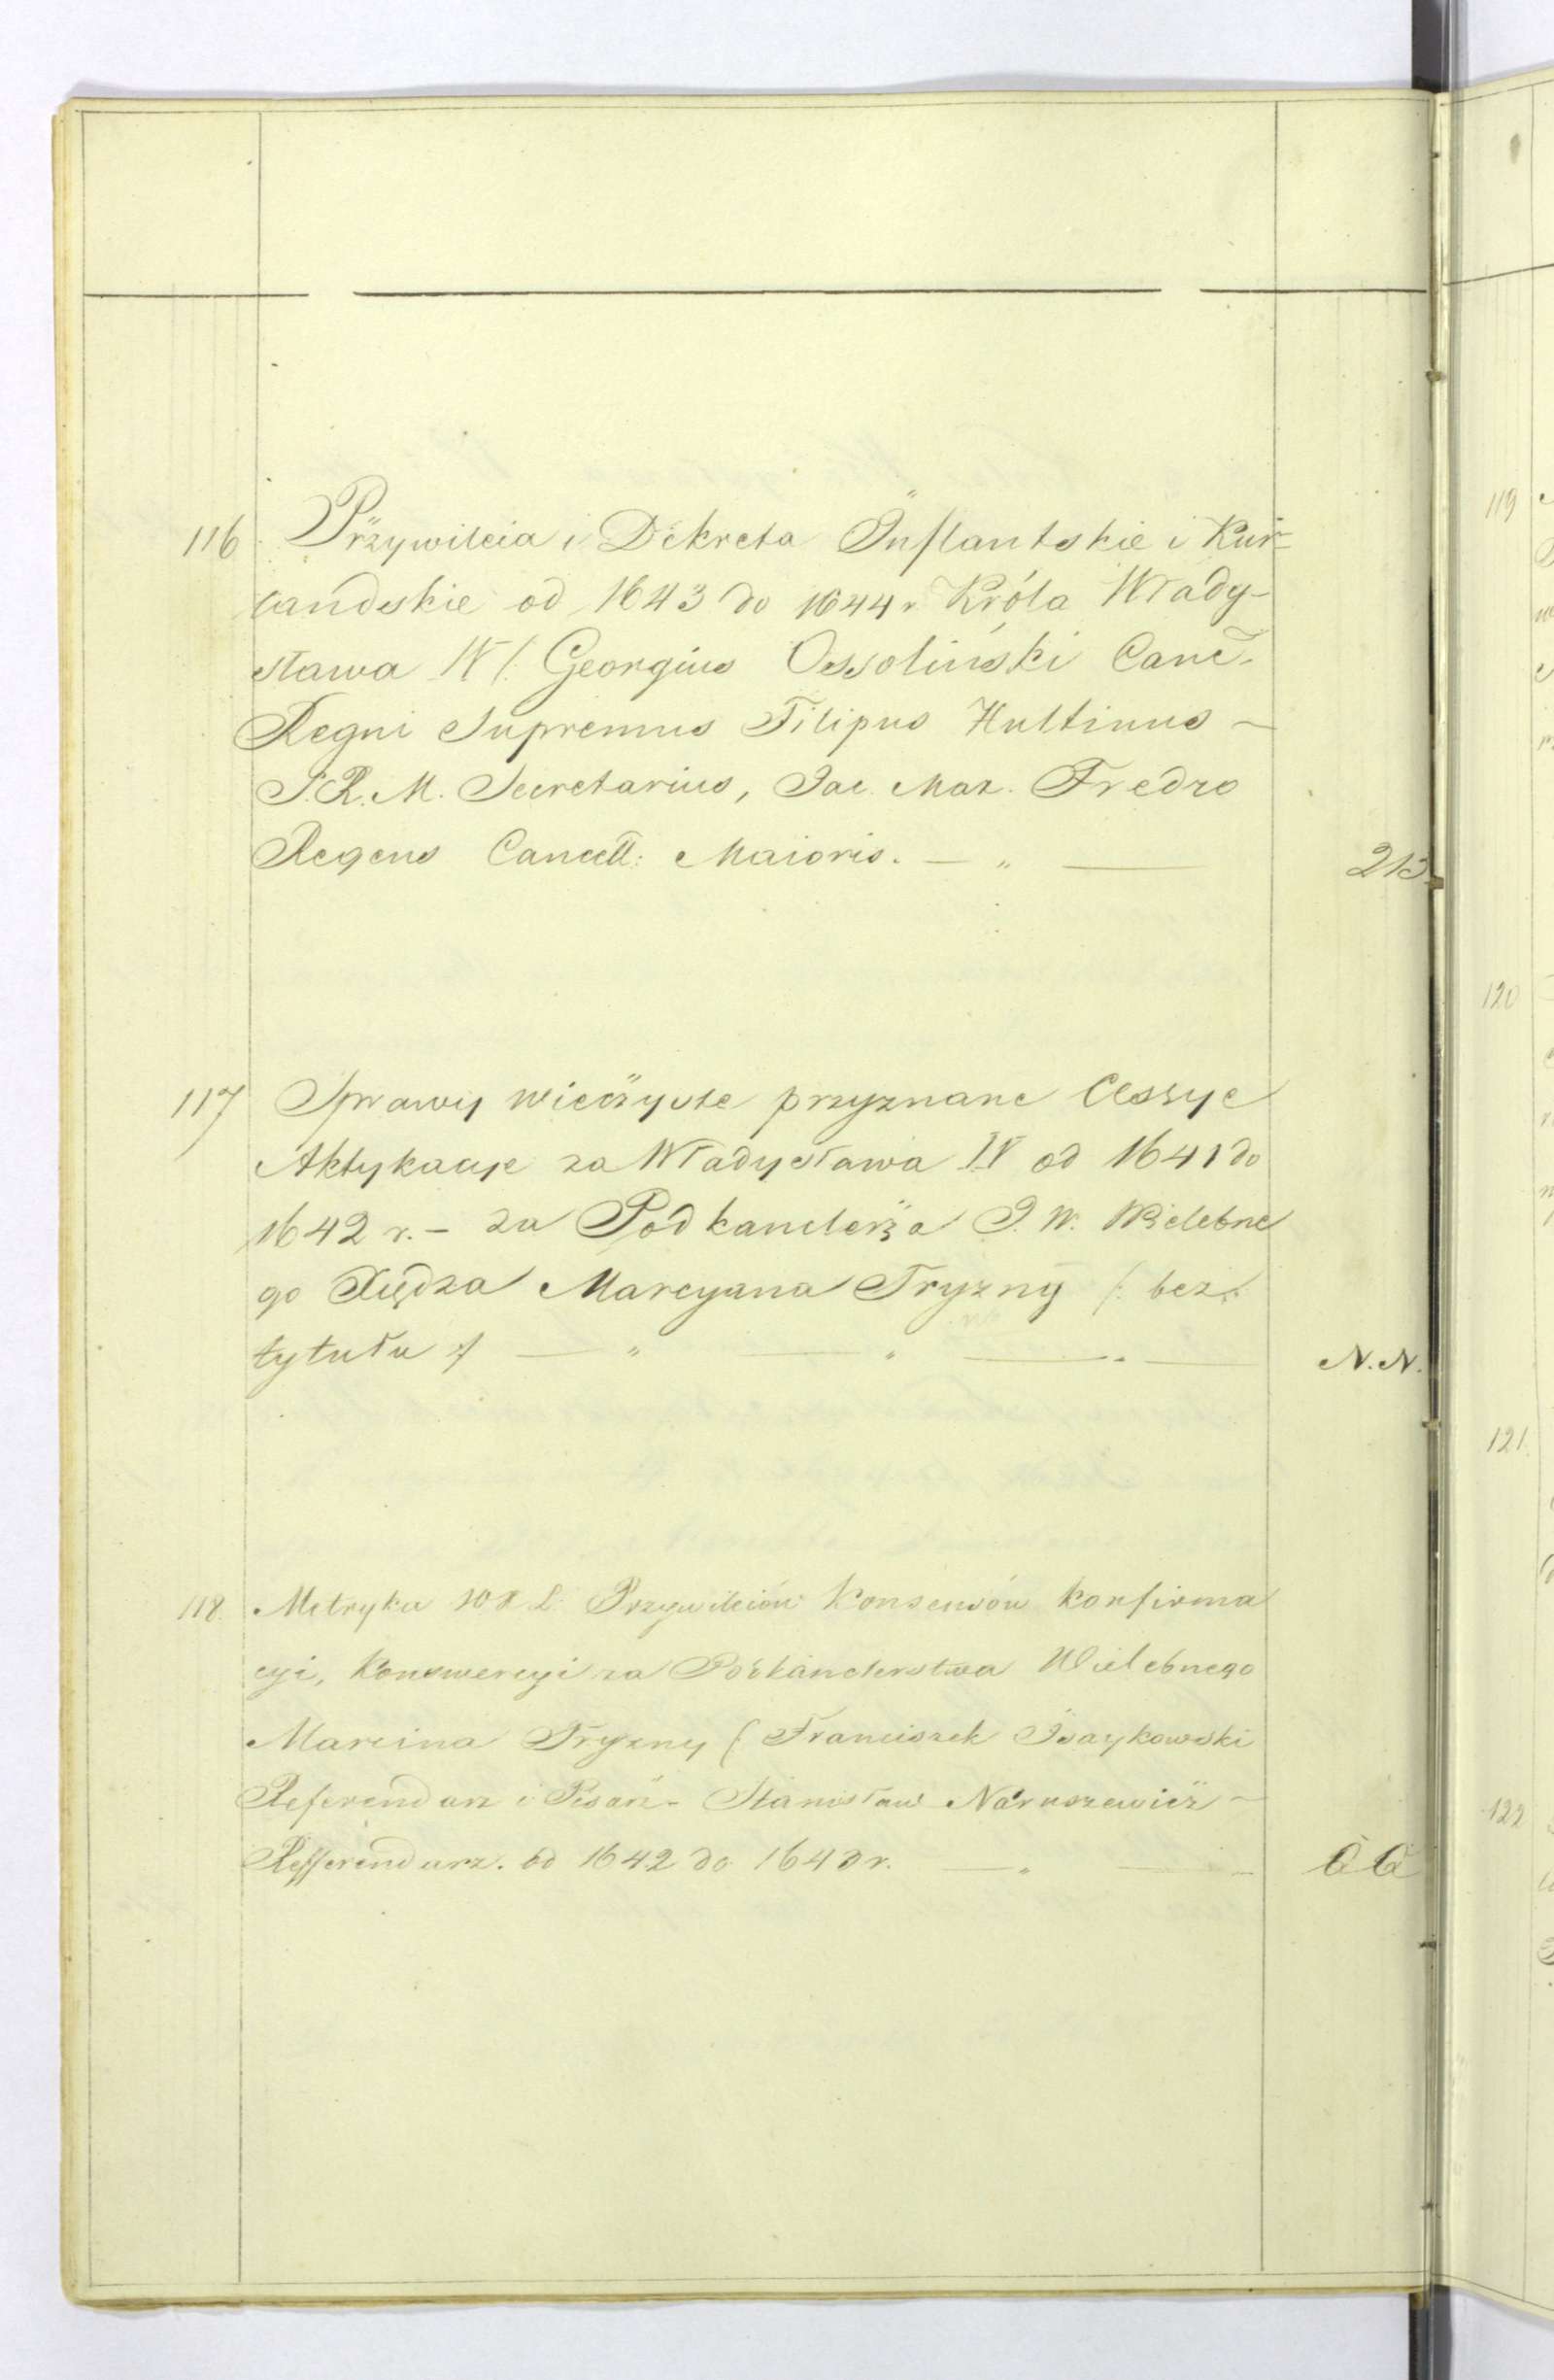 116 Przywileia i Dekreta Inflantskie i Kur-
landskie od 1643 do 1644 r Króla Włady-
sława IV /: Georgius Ossoliński Canc.
Regni Supremus Filipus Hultinus –
S. R. M. Secretarius, Jac. Max. Fredro
Regens Cancell: Maioris. — „ — 213
117 Sprawy wieczyste przyznane Cessye
Aktykacye za Władysława IV od 1641 do
1642 r. – za Podkanclerza J. W. Wielebne
go Xiędza Marcyana Tryzny /: bez
tytułu :/ — „ — „ — N. N.
118. Metryka WXL Przywileiów Konsensów konfirma
cyi, Konswercyi za Podkanclerstwa Wielebnego
Marcina Tryzny ( Franciszek Isaykowski
Referendarz i Pisarz – Stanisław Naruszewicz –
Refferendarz. od 1642 do 1643 r. „ —
119
120
121.
122